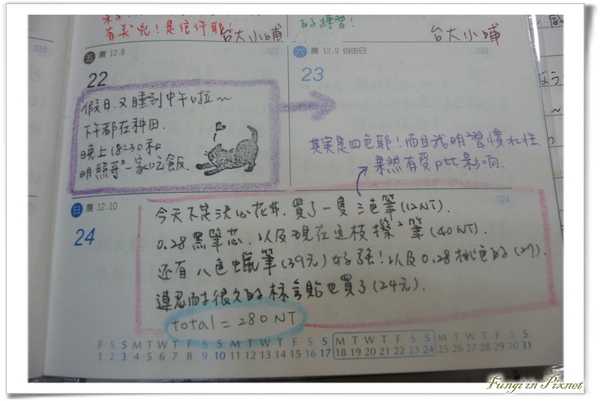 台大小哺
的練習!
台大小哺
五 農 12.8
22
假日又睡到中午啦~
下午都在種田.
晚上18:30和
明照哥一家吃飯.
六 農 12.9 自由日
23
其實是四色耶!而且我明習慣水性
果然有受Ptt影响.
日 農 12.10
24
今天下定決心花井.買了一隻三色筆(12NT).
0.28黑筆芯.以及現在這枝擦擦筆(40NT).
還有八色蠟筆(39元)好強!以及0.28桃色的(29).
連忍耐很久的标言貼也買了(24元).
total = 280 NT
F S S M T W T F S S M T W T F S S M T W T F S S M T W T F S S
1 2 3 4 5 6 7 8 9 10 11 12 13 14 15 16 17 18 19 20 21 22 23 24 25 26 27 28 29 30 31
Fungi in Pixnet